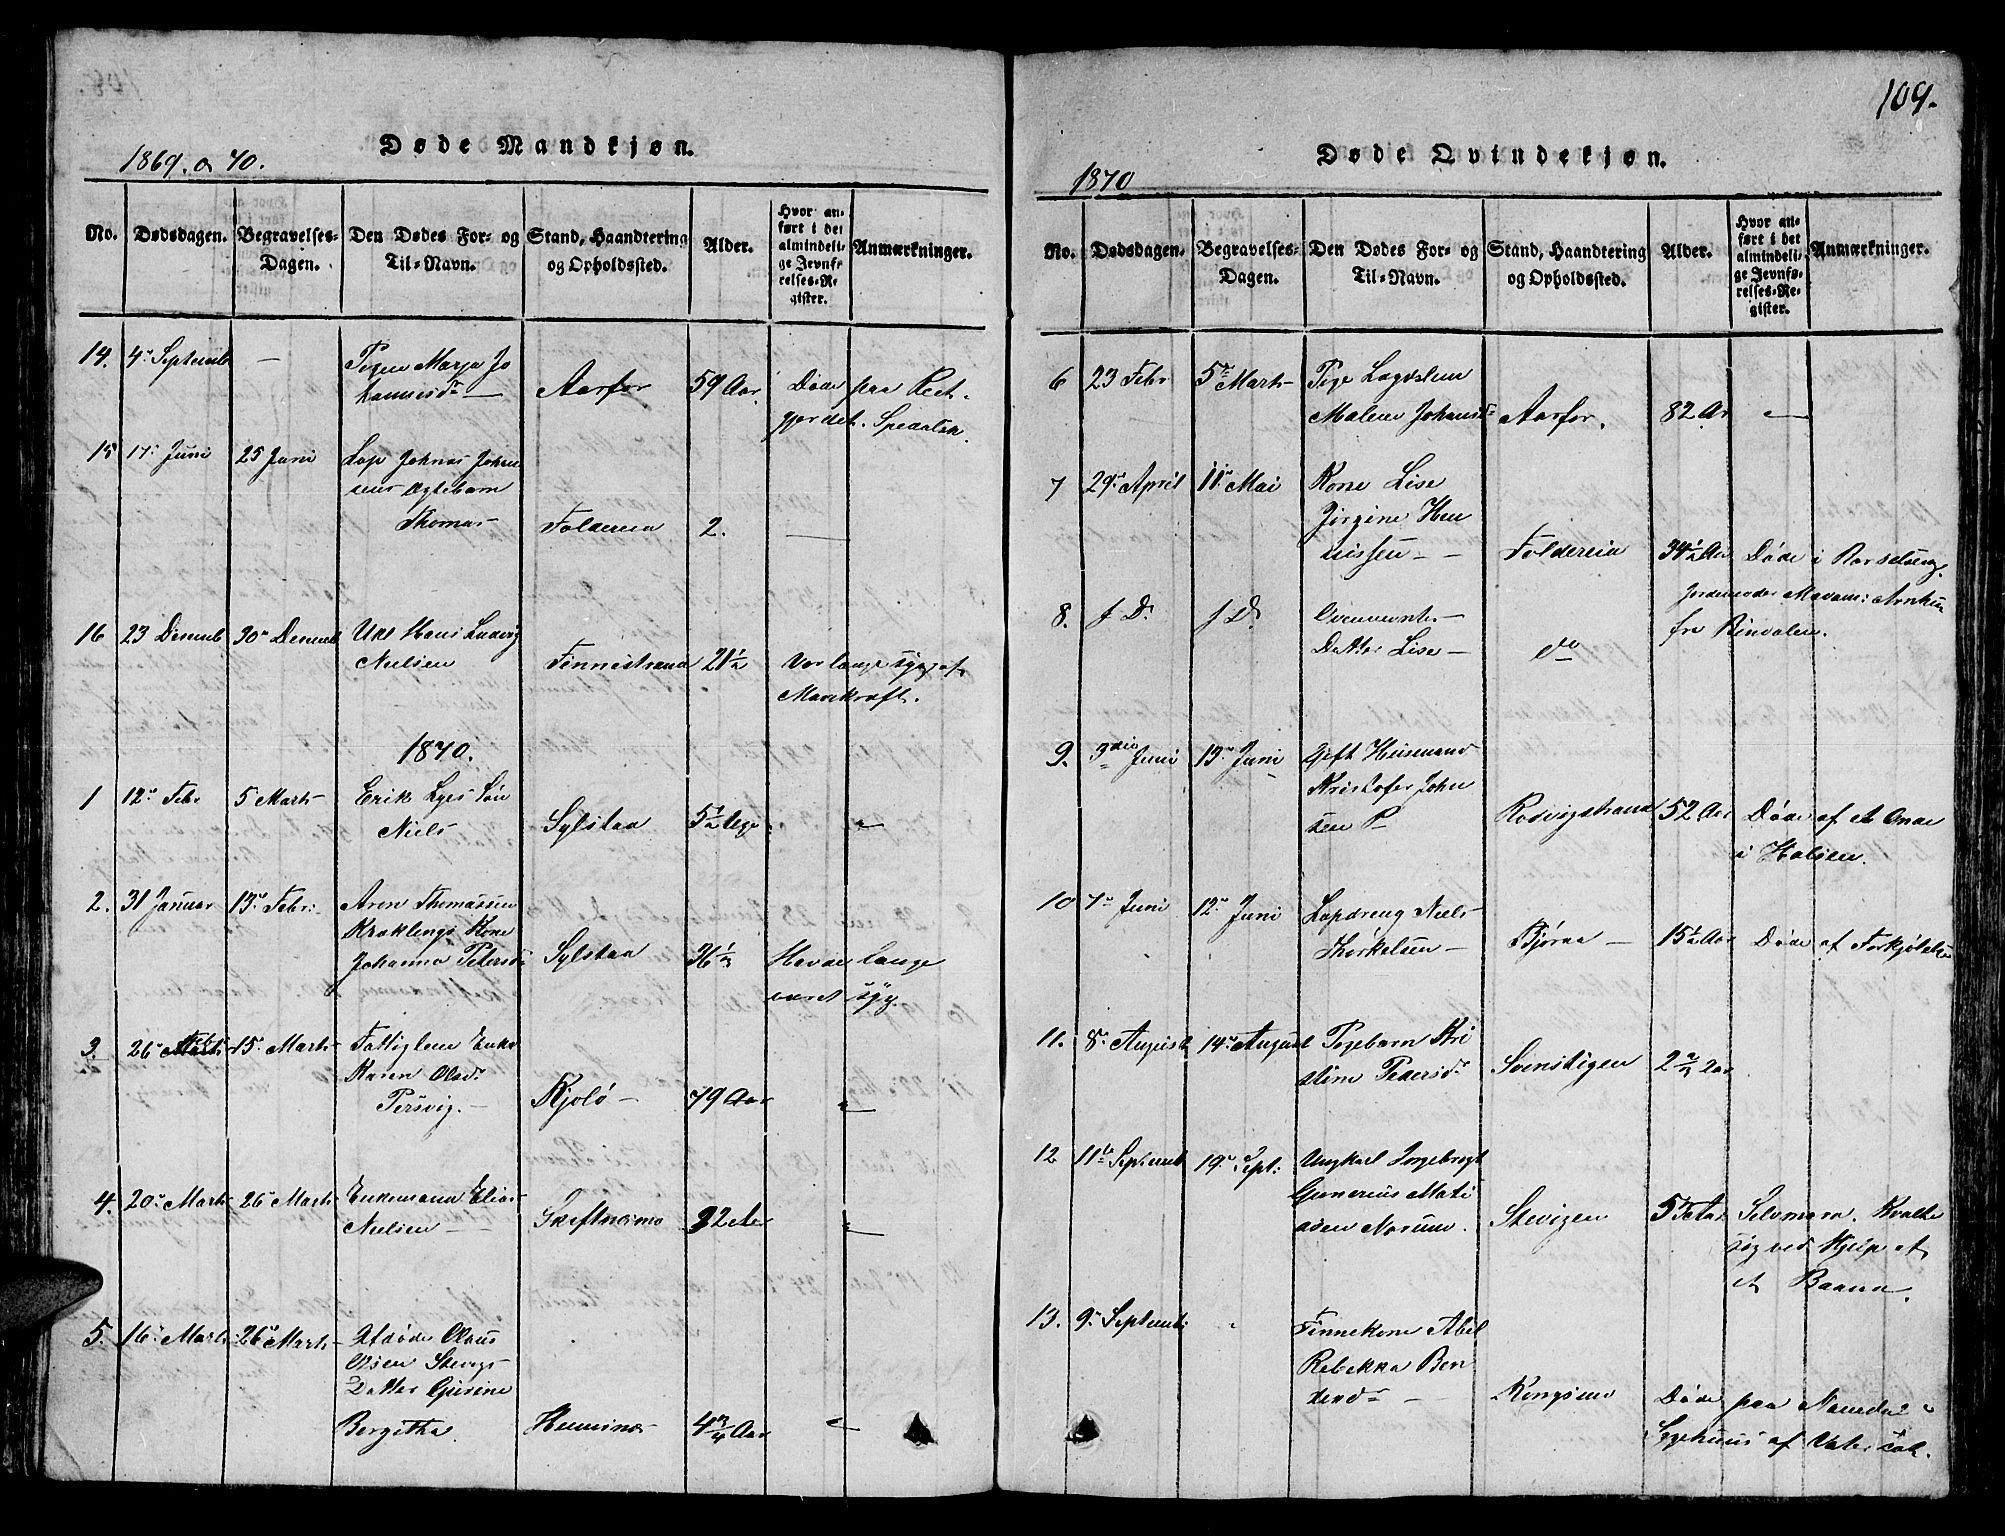 109.
Døde Mandkjøn.
1869. o 70.
No.
Dødsdagen.
Begravelses-
Dagen.
Den Dødes For- og
Til-Navn.
Stand, Haandtering
og Opholdssted.
Alder.
Hvor an-
ført i det
almindeli-
ge Jevnfø-
relses-Re-
gister.
Anmærkninger.
14. 4de Septemb — Pigen Marja Jo
hannesdr — Aarfor 59 Aar. Døde paa Reet-
gjerdet. Spedalsk.
15 17de Juni 25 Juni Lap Johnas Johan
sens Ægtebarn
Thomas Foldereid 2. —
16 23 Decemb 30te Decemb Ukl Hans Ludvig
Nielsen Finnestrand 21½ Var lange syg af
Mavekræft.
1870.
1 12te Febr 5 Marts Erik Søn
Niels Sylstad 5½ Uge "
2. 31 Januar 13de Febr: Aron Thomassen
Kraklings Kone
Johanna Petersdr Sylstad 36 Havde lange
været syg.
3. 26de Marts 15de Marts Fattiglem Enke
Karen Olsdr
Persvig. — Kjolø — 79 Aar "
4. 20de Marts 26de Marts Enkemand Elias
Nielsen — 82 Aar "
5. 16de Marts 26de Marts Afdøde Olaus
Olsen Stevigs
Datter Gurine
Bergitha. Hemnes 4 Aar "
Døde Qvindekjøn.
1870
No.
Dødsdagen.
Begravelses-
Dagen.
Den Dødes For- og
Til-Navn.
Stand, Haandtering
og Opholdssted.
Alder.
Hvor an-
ført i det
almindeli-
ge Jevnfø-
relses-Re-
gister.
Anmærkninger.
6 23 Febr 5te Marts Pige Lægdslem
Malene Johansdr Aarfor. 82 Ar "
7 29de April 11te Mai Kone Lise
Jørgine Hen
rissen — Foldereid 34½ Aar Døde i Barselseng.
Jordemoder Madam:
8. f D. f D. Ovennevnte
Datter Lise — do fra Bindalen.
9. 3die Juni 13de Juni Gift Husmand
Kristofer John
sen P — Rodvigstrand 52 Aar Døde af et Onde
i Halsen.
10 7de Juni 12te Juni Lapdreng Niels
Thorkelsen — Bjøraa — 15½ Aar Døde af Forkjølelse
11. 8de August 14de August Pigebarn Kri
stine Pedersdr Svenstigen 2 Aar
12 11te Septemb 19de Sept: Ungkarl Ingebrigt
Gunerius Mati
asen Norum. Stevigen 57 Aar Selvmord. Kvalte
sig ved Hjelp af
et Baand.
13. 9de Septemb: " Finnekone Abel
Rebekka Ben
dr — Kongsmo Døde paa Namdal
Sygehuus af Vater